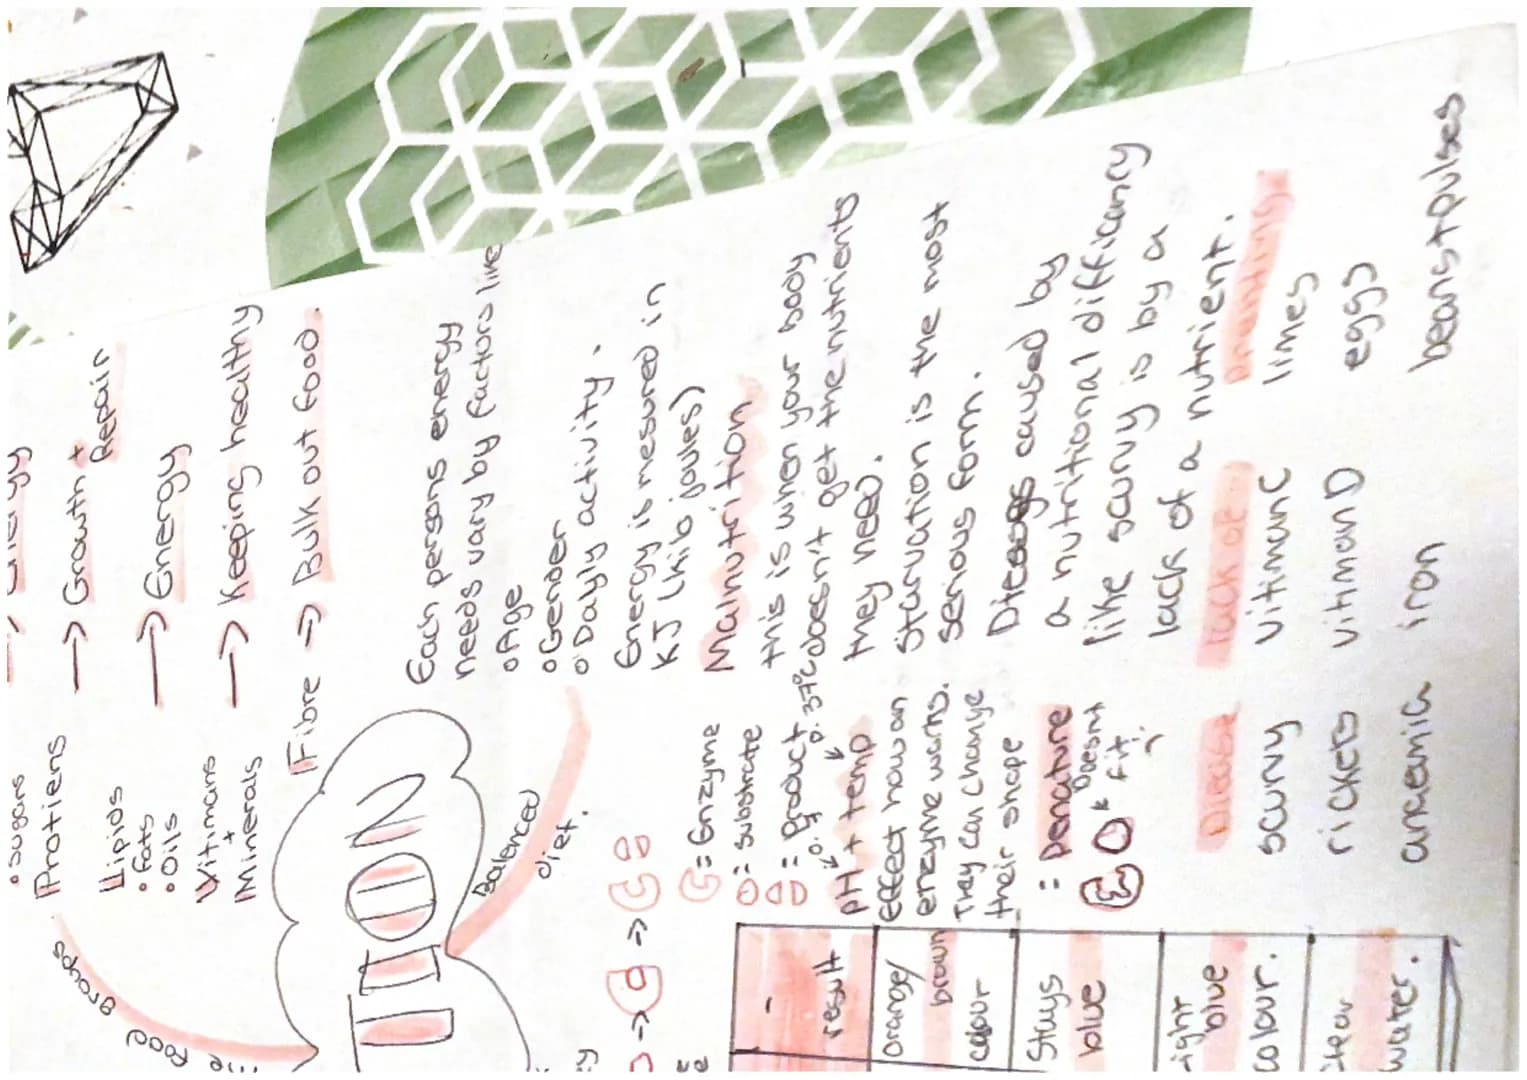 • sugars
Protiens → Growth + Repair
Lipids → Energy
• fats
• oils
Vitimans → Keeping healthy
+
Minerals
Fibre → Bulk out food.
Food Groups
TION
Balenced
diet.
Each persons energy
needs vary by factors like
• Age
• Gender
• Dayly activity.
Energy is mesured in
KJ (kilo joules)
Malnutrition
this is when your body
doesn't get the nutrients
they need.
Starvation is the most
serious form.
caused by
a nutritional difficiancy
like scurvy is by a
lack of a nutrient.
= Enzyme
= substrate
= Product
37°C
pH + temp
effect how an
enzyme works.
They can change
their shape
= Denature
Doesnt
fit.
lack of
scurvy vitiman C limes
rickets vitiman D eggs
anaemia iron beans + pulses
- result
Orange/
brown
colour
Stays
blue
blue
colour.
water.